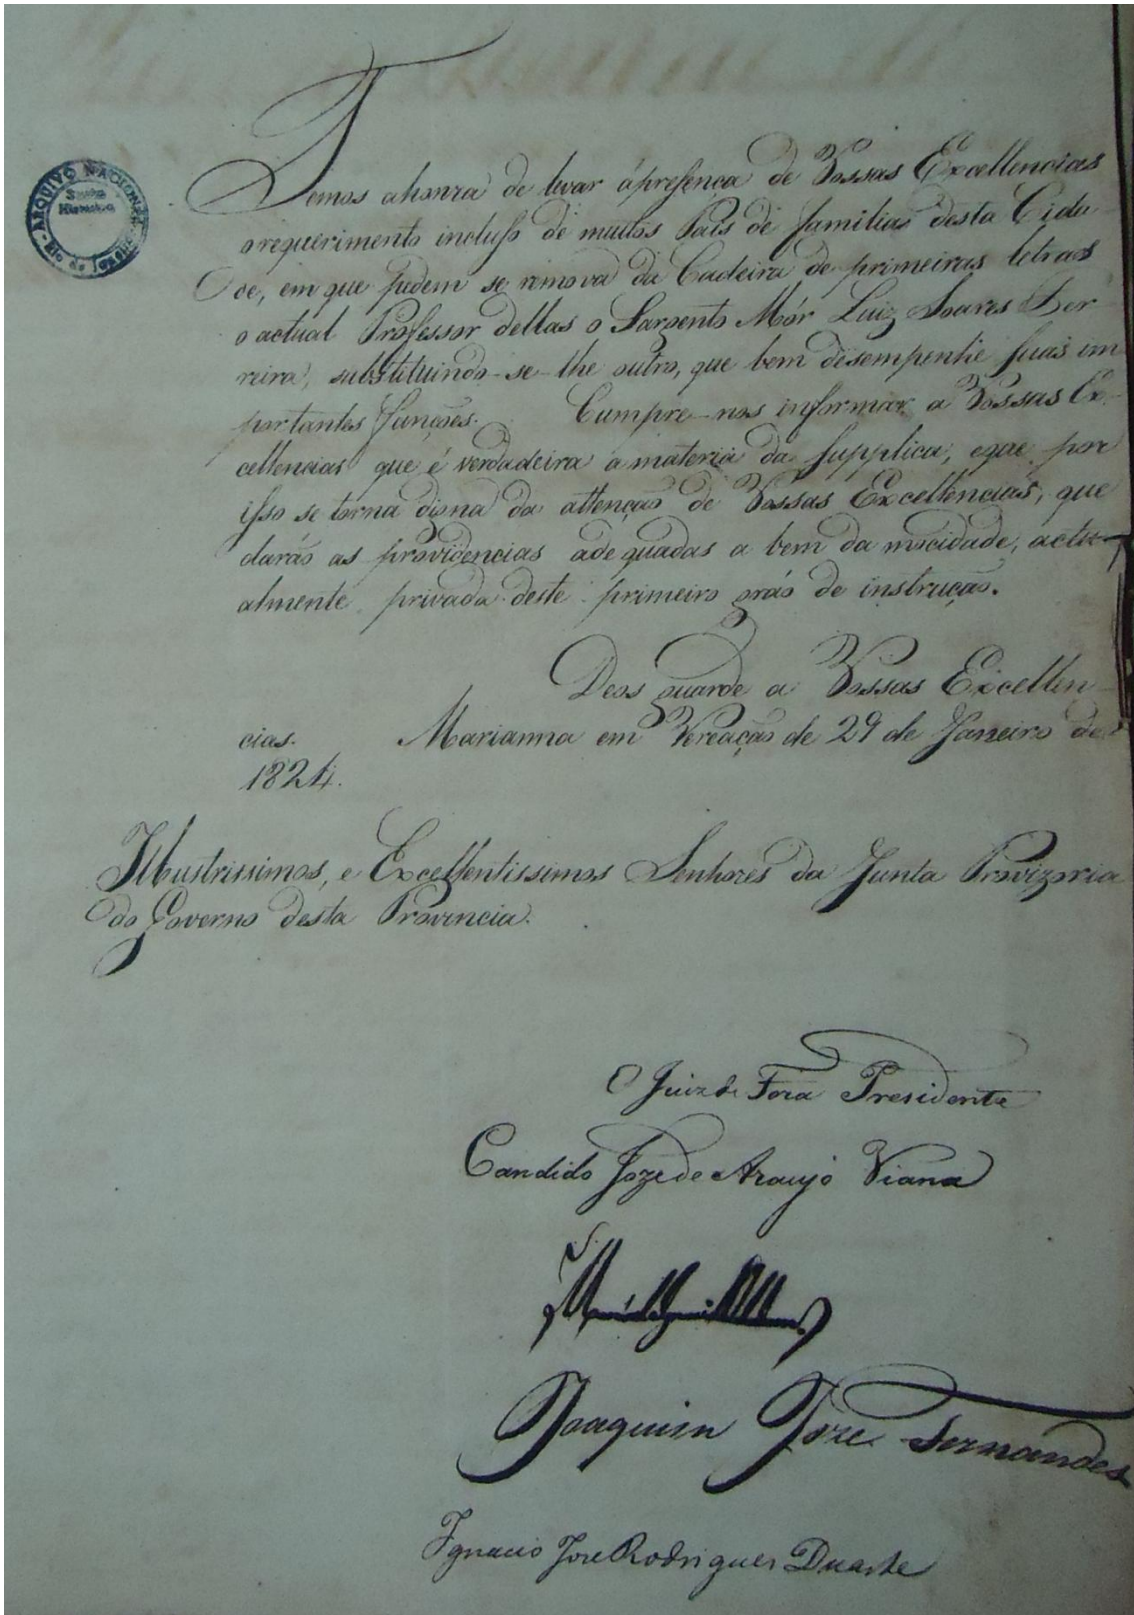 ARQUIVO NACIONAL
Secção
Historica
Rio de Janeiro
Temos ahonra de levar ápresença de Vossas Excellencias
orequerimento incluso de muitos Pais de familias desta Cida-
de, em que pedem se remova da Cadeira de primeiras letras
o actual Professor dellas o Sargento Mór Luiz Soares Fer-
reira, substituindo-se-lhe outro, que bem desempenhe suas im
portantes funções. Cumpre-nos informar a Vossas Ex-
cellencias que é verdadeira a materia da supplica, eque por
isso se torna digna da attenção de Vossas Excellencias, que
darão as providencias adequadas a bem da mocidade, actu-
almente privada deste primeiro gráo de instrução.
Deos guarde a Vossas Excellen-
cias. Marianna em Vereação de 29 de Janeiro de
1824.
Illustrissimos, e Excellentissimos Senhores da Junta Provizoria
do Governo desta Provincia.
O Juiz de Fora Presidente
Candido Joze de Araujo Viana
Joaquim Joze Fernandes
Ignacio Joze Rodrigues Duarte